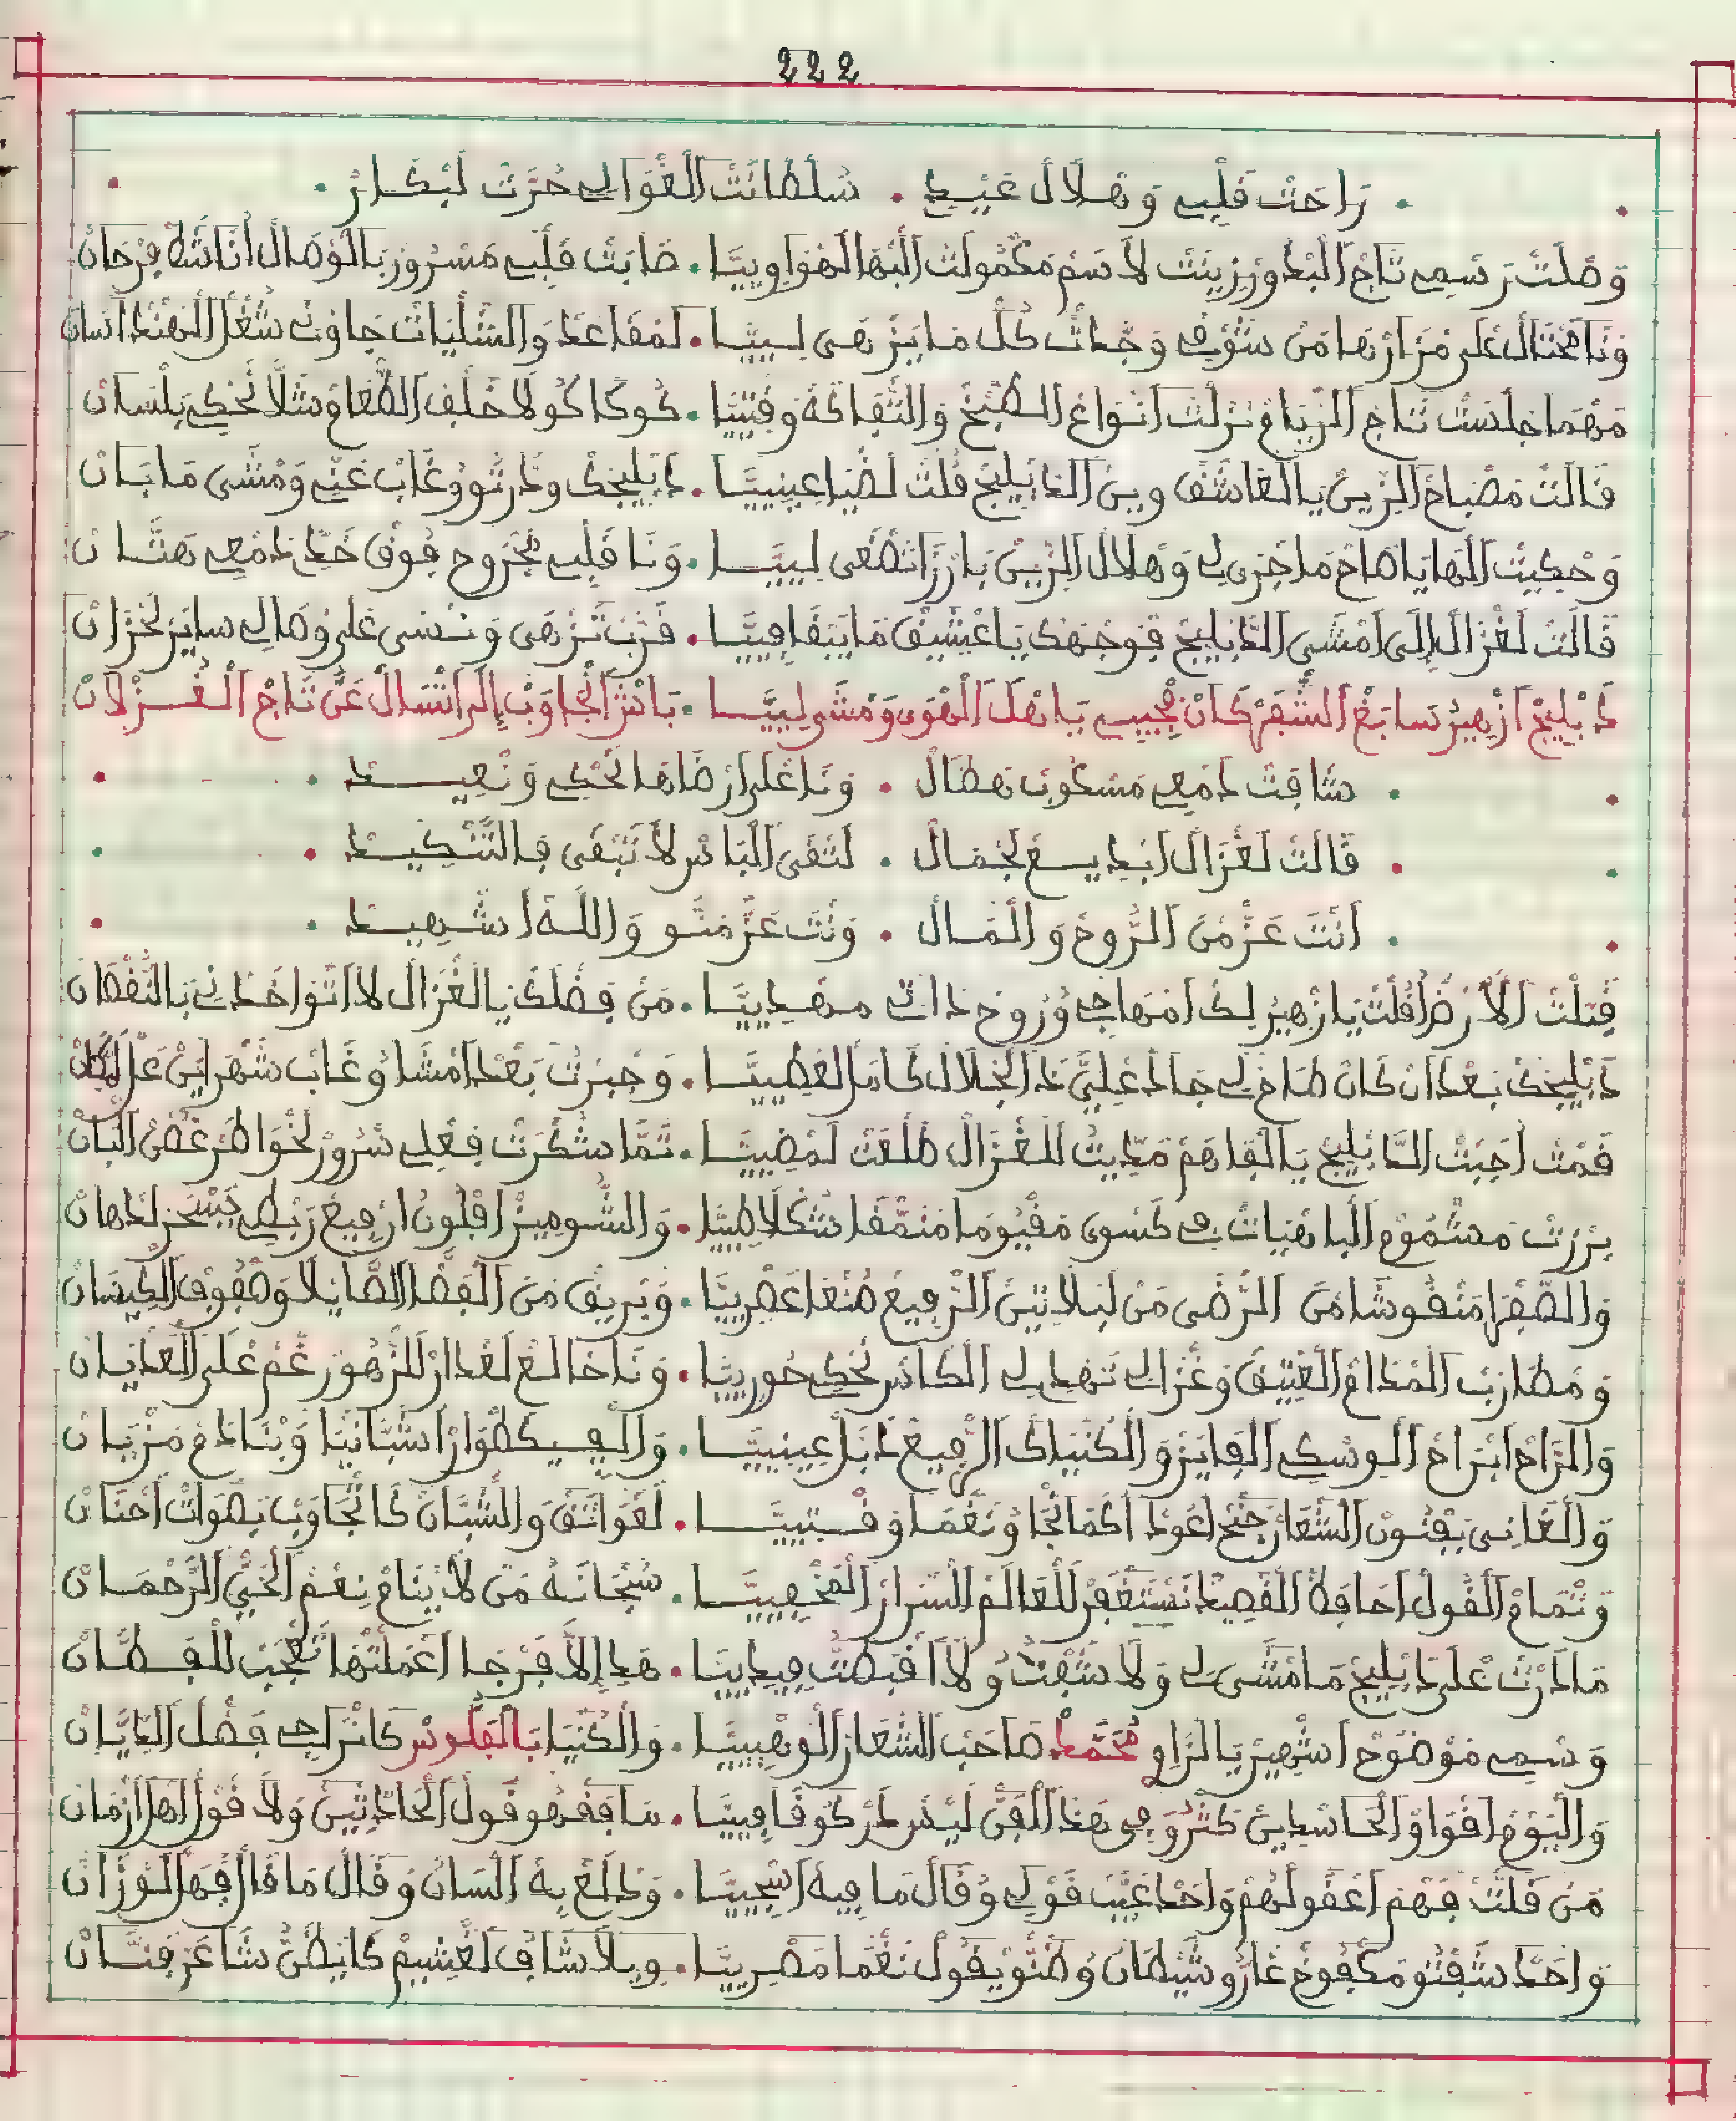 222
رَاحَتْ قَلْبِي وَهْلَالْ عَيْدِي • سُلْطَانَتْ الْغْوَالِي حُرَّتْ لَبْكَارْ
وَصْلَتْ رَسْمِي تَاجْ الْبْدُورْ زِينَتْ لَاسَمْ مَكْمُولَتْ الْبْهَا الْهَوَاوِييَّا • طَابَتْ قَلْبِي مَسْرُورْ بَالْوْصَالْ أَنَا نَاشَطْ فَرْحَانْ
وَنَا مَحْتَالْ عْلَى مْزَارْهَا مَنْ شَوْقِي وَجَّدْتْ كُلّْ مَا يَزْهَى لِييَّا • لَمْقَاعَدْ وَالشَّلْيَاتْ جَاوْنِي شُغْلْ الْهَنْدْ
مَهْمَا جَلْسَتْ تَاجْ الرْيَامْ نَزْلَتْ أَنْوَاعْ الطْبِيخْ وَالثْقَافَة وَقْتِيَّا • كُوكَا كُولَا خَلْفْ الطْعَامْ مَثَلَا نَحْكِي بَلْسَانْ
قَالَتْ مَصْبَاحْ الزِّينْ يَا الْعَاشَقْ وِينْ الدَّبْلِيجْ قُلْتْ لَضْيَا عِينِييَّا • دَبْلِيجَكْ وَدَّرْتُو وُغَابْ عَنِّي وَمْشَى مَا بَانْ
وَحْكِيتْ الْهَا يَا صَاحْ مَا جْرَى لِي وَهْلَالْ الزِّينْ بَارْزَا تَصْغَى لِييَّا • وَنَا قَلْبِي مَجْرُوحْ فُوقْ خَدِّي دَمْعِي هَتَّانْ
قَالَتْ لَغْزَالْ إِلَى أَمْشَى الدَّبْلِيجْ فَوَجْهَكْ يَا عْشِيقْ مَا يَبْقَا فِييَّا • قَرَّبْ تَزْهَى وَنْسَى عْلَى وْصَالِي سَايَرْ لَحْزَانْ
دَبْلِيجْ أَزْهِيرْ سَابَغْ الشْفَرْ كَانْ مْجِيبِي يَا هْلْ الْهْوَى وَمْشَى لِييَّا • بَاشْ أَنْجَاوَبْ إِلَى اتْسَالْ عَنُّ تَاجْ الْغُزْلَانْ
شَافَتْ دَمْعِي مَسْكُوبْ هَطَّالْ • وَنَا عْلَى أَرْضَاهَا نَحْكِي وَنْعِيدْ
قَالَتْ لَغْزَالْ أَبْدِيعْ لَجْمَالْ • لَتْقَى الْبَاسْ لَا تَبْقَى فَالتَّنْكِيدْ
أَنْتَ عَزّْ مَنْ الرُّوحْ وَالْمَالْ • وَنْتَ عَزّْ مَنُّو وَاللَّهْ أَشْهِيدْ
قَبْلَتْ الْأَرْضْ أَقُلْتْ يَا زْهِيرْ لِكْ أَمْهَاجِي وُرُوحْ ذَاتِي مَهْدِييَّا • مَنْ فَضْلَكْ يَا الْغْزَالْ لَا اتْوَاخَدْنِي بَالنُّقْصَانْ
دَبْلِيجَكْ بَعْدْ أَنْ كَانْ طَاحْ لِي جَادْ عْلِيَّ ذَ الْجْلَالْ كَامَلْ الْعْطِييَّا • وَجْبَرْتْ بَعْدْ أَمْشَا وُغَابْ شَهْرَايَنْ
قَمْتْ أَجْبَتْ الدَّبْلِيجْ يَا الْفَاهَمْ مَدِّيتُ لَلْغْزَالْ طَلْعَتْ لَمْضِييَّا • تَمَّا شَكْرَتْ فَعْلِي سْرُورْ لَخْوَاطَرْ غَصْنْ الْبَانْ
بَرْزَتْ مَشْمُومْ الْبَاهْيَاتْ فِي كَسْوَى مَفْيُومَا مْنَمّْقَا • وَالشُّومِيزْ أَقْلُونْ أَرْفِيعْ رَبْطِي يَسْحَرْ لَدْهَانْ
وَالصَّفْرَا مَنْقُوشَا مَنْ الرّْضَى مَنْ لَبْلَاتِينْ الرْفِيعْ صَنْعَا عَصْرِييَّا • وَبْرِيقْ مَنْ الْفَضَّا الصَّايْلَا وَصْفُوفْ الْكِيسَانْ
وَمْضَارَبْ الْمْدَامْ الْعْتِيقْ وَغْزَالِي تَهْدِي لِي الْكَاسْ تَحْكِي حُورِييَّا • وَنَا خَالَعْ لَعْدَارْ لَلزّْهُو رْغَمْ عْلَى الْعَدْيَانْ
وَالرَّاحْ أَبْرَاحْ الْوِسْكِي الْفَايَزْ وَالْكُنْيَاكْ الرْفِيعْ دَبَّلْ عِينِييَّا • وَالْفِي كَطْوَارْ أَسْبَانْيَا وَبْنَادَمْ مَزْيَانْ
وَالْغَانِي بِفْنُونْ الشْعَارْ جَنْحْ أَعْوَدْ أَكْمَانْجَا وُنَغْمَا وَقْتِييَّا • لَعْوَاتَقْ وَالشُّبَّانْ كَا تْجَاوَبْ بَصْوَاتْ أَحْنَانْ
وَتْمَامْ الْقُولْ أَحَافَظْ الْقْصِيدَا نَسْتَغْفَرْ لَلْعَالَمْ السْرَارْ الْمَخْفِييَّا • سُبْحَانَهْ مَنْ لَا يْنَامْ نِعْمْ الْحَيّْ الرَّحْمَانْ
مَا دَرْتْ عْلَى دَبْلِيجْ مَا مْشَى لِي وَلَا شَفْتُ وُلَا أَقْبَضْتُ فِيدِييَّا • هَدِ إِلَّا فَرْجَا أَعْمَلْتْهَا تْعْجَبْ لَلْفَطَّانْ
وَسْمِي مَوْضُوحْ أَشْهِيرْ يَا الرَّاوِي مُحَمَّدْ صَاحَبْ الشْعَارْ الْوَهْبِييَّا • وَالْكُنْيَا بَالْفَلُّوسْ كَانْرَاجِي فَضْلْ الدِّيَّانْ
وَالْيَوْمْ أَقْوَاوْ الْحَاسْدِينْ كَثْرُو فِي هَذَا الْفَنّْ لَيْسْ دَرْكُو قَافِييَّا • سَافَفْهُو قَولْ الْحَادْتِينْ وَلَا قُولْ أَهْلْ أَزْمَانْ
مَنْ قَلَّتْ فَهْمْ أَعْقُولْهُمْ وَاحَدْ عَيَّبْ قَوْلِي وُقَالْ مَا فِيهْ أَسْجِييَّا • وَدْلَعْ بِهْ الْسَانْ وَقَالْ مَا قَالْ أَفْهَلْ لَوْزَانْ
وَاحَدْ شَفْتُو مَكْفُوخْ غَارُّو شَيْطَانْ وُضَنُّو يْقُولْ نَغْمَا مَصْرِييَّا • وِيلَا شَافْ لَغْشِيمْ كَا يْظَنّْ شَاعَرْ فَنَّانْ